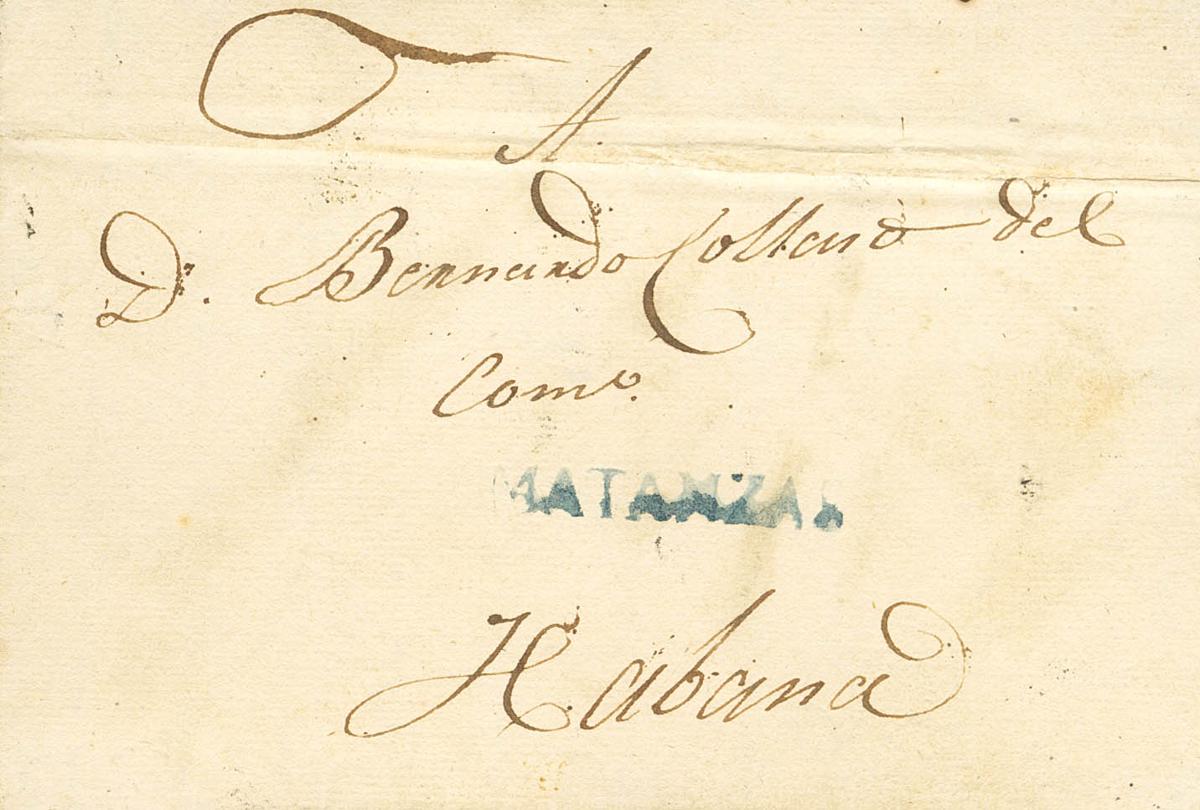 A
D.n Bernardo Collaso del
Como.
MATANZAS
Habana